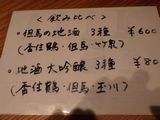 <飲み比べ>
・但馬の地酒 3種 ¥600
(香住鶴・但馬・竹泉)
・地酒 大吟醸 3種 ¥80
(香住鶴・但馬・玉川)